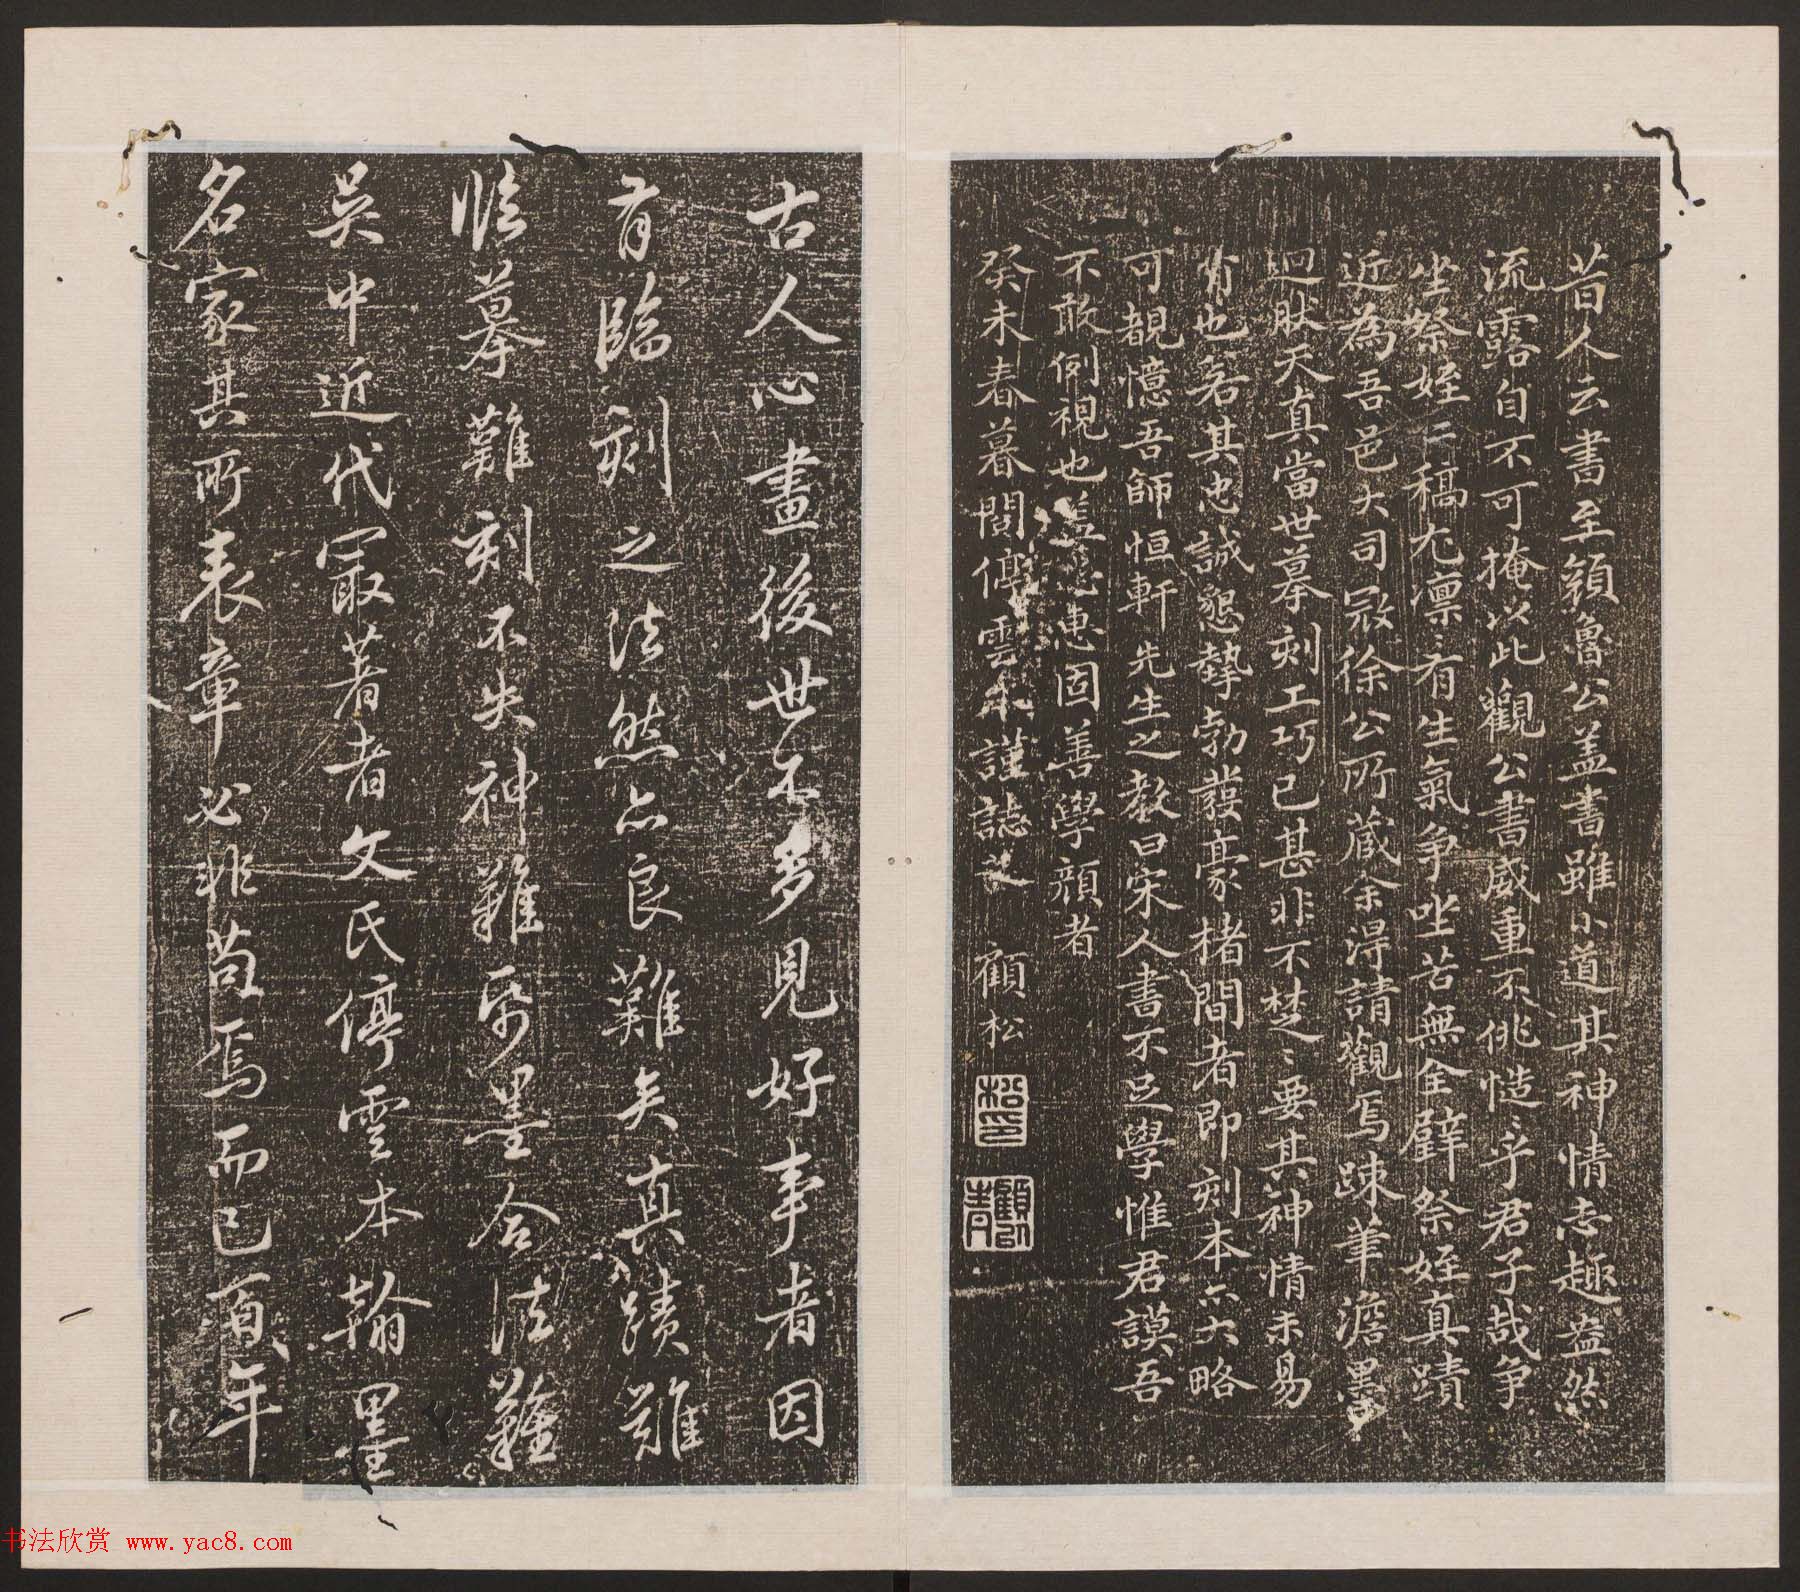 昔人云書至顏魯公蓋書雖小道其神情志趣盎然
流露自不可掩以此觀公書威重不佻慥乎君子哉爭
坐祭姪二稿尤凛〻有生氣爭坐苦無全璧祭姪真蹟
近為吾邑大司寇徐公所藏余得請觀焉疎筆澹墨
迥肰天真當世摹刻工巧已甚非不楚〻要其神情未易
肖也若其忠誠懇摯勃發豪楮間者即刻本亦大略
可覩憶吾師恒軒先生之教曰宋人書不足學惟君謨吾
不敢例視也蓋忠惠固善學顏者
癸未春暮閱停雲本謹誌 顧松
松印
古人心畫後世不多見好事者因
有臨刻之法然亦良難矣真蹟難
臨摹難刻不失神難紙墨合法難
吳中近代最著者文氏停雲本翰墨
名家其所表章必非苟焉而已百年
书法欣赏 www.yac8.com